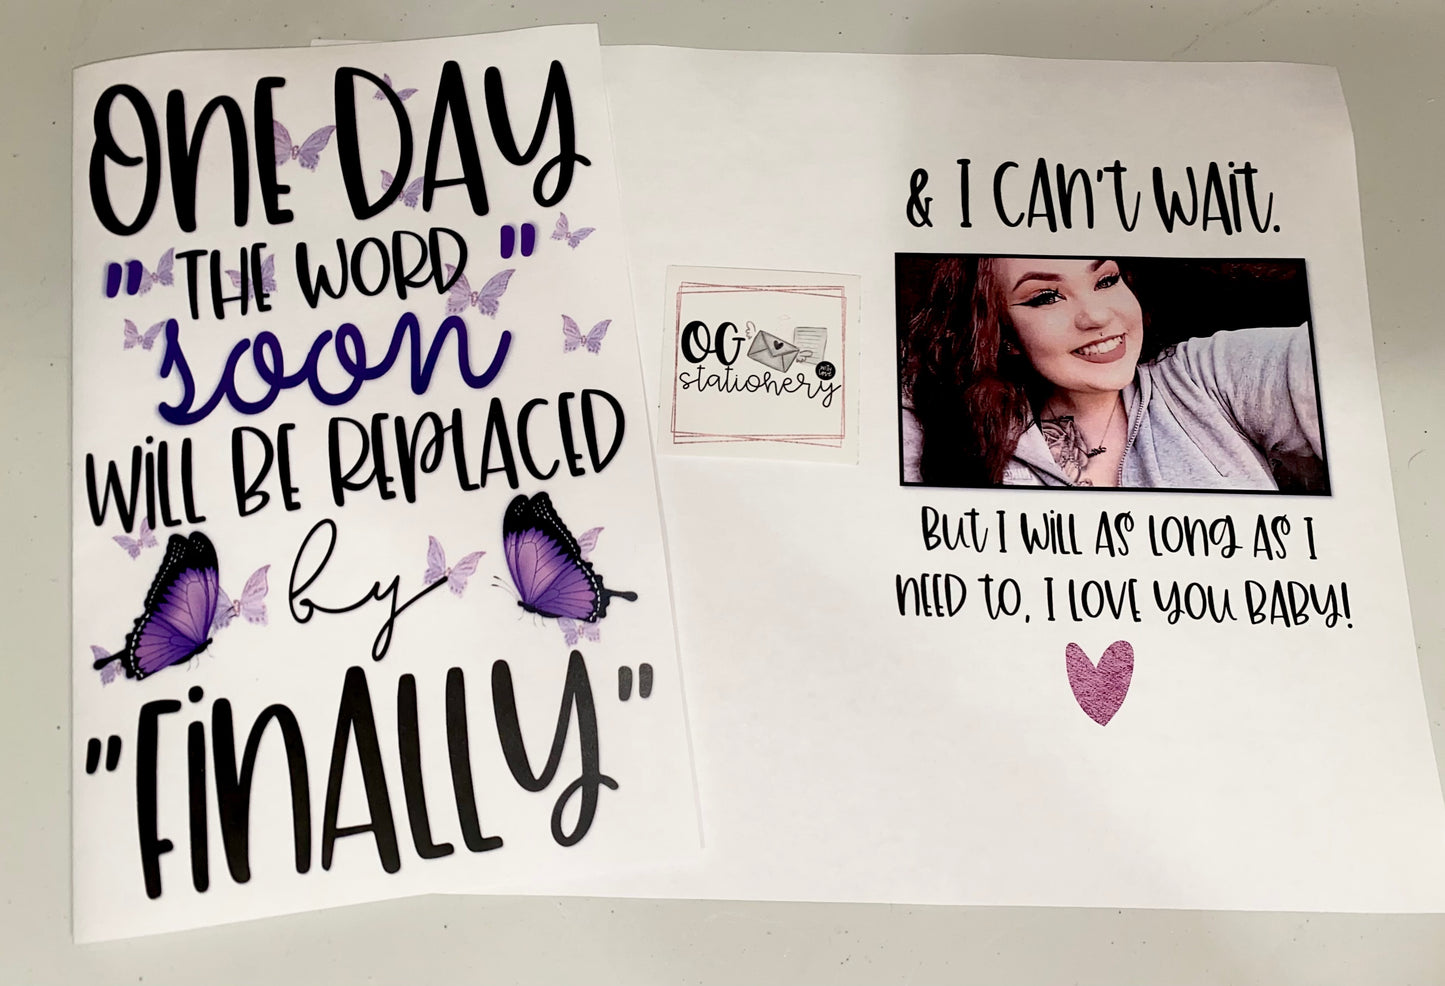 ONE DAY
"THE WORD"
soon
WILL BE REPLACED
by
"FINALLY"
OG
stationery
WITH
LOVE
& I CAN'T WAIT.
BUT I WILL AS LONG AS I
NEED TO, I LOVE YOU BABY!